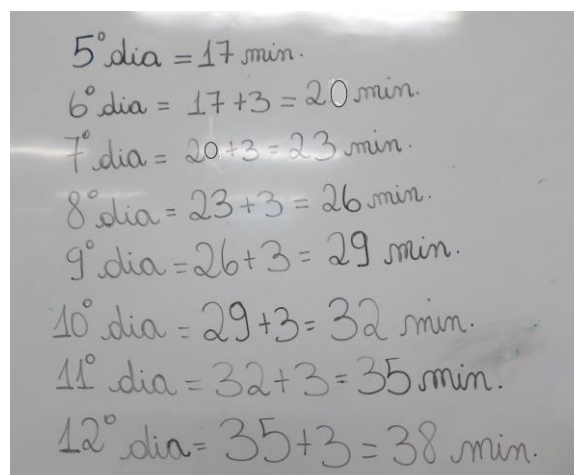 5º dia = 17 min.
6º dia = 17 + 3 = 20 min.
7º dia = 20 + 3 = 23 min.
8º dia = 23 + 3 = 26 min.
9º dia = 26 + 3 = 29 min.
10º dia = 29 + 3 = 32 min.
11º dia = 32 + 3 = 35 min.
12º dia = 35 + 3 = 38 min.